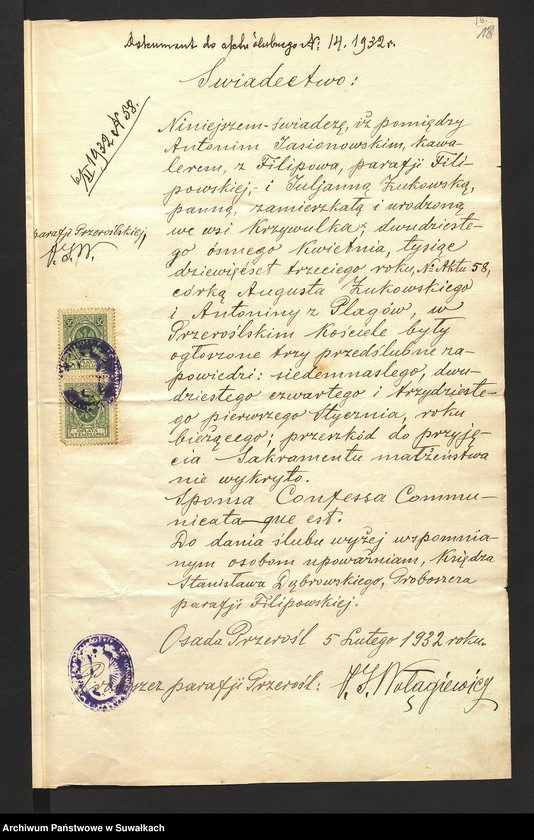 16.
18
Dokument do aktu ślubnego № 14. 1932 r.
Świadectwo:
6/II 1932 № 38.
Niniejszem świadczę, iż pomiędzy
Antonim Jasionowskim, kawa-
lerem, z Filipowa, parafji Fili-
powskiej,- i Juljanną Żukowską,
panną, zamieszkałą i urodzoną
we wsi Krzywulka, dwudzieste-
parafji Przeroślskiej,
go ósmego Kwietnia, tysiąc
dziewięćset trzeciego roku, № Aktu 58,
córką Augusta Żukowskiego
i Antoniny z Plagów, w
Przeroślskim Kościele były
ogłoszone trzy przedślubne za-
powiedzi: siedemnastego, dwu-
dziestego czwartego i trzydzieste-
go pierwszego Stycznia, roku
bieżącego; przeszkód do przyję-
cia Sakramentu małżeństwa
nie wykryto.
Sponsa Confessa Commu-
nicata que est.
Do dania ślubu wyżej wspomnia-
nym osobom upoważniam, Księdza
Stanisława Dąbrowskiego, Proboszcza
parafji Filipowskiej.
Osada Przerośl 5 Lutego 1932 roku.
Proboszcz parafji Przerośl: K. J. Wołągiewicz
OPŁATA
STEMPLOWA
Archiwum Państwowe w Suwałkach